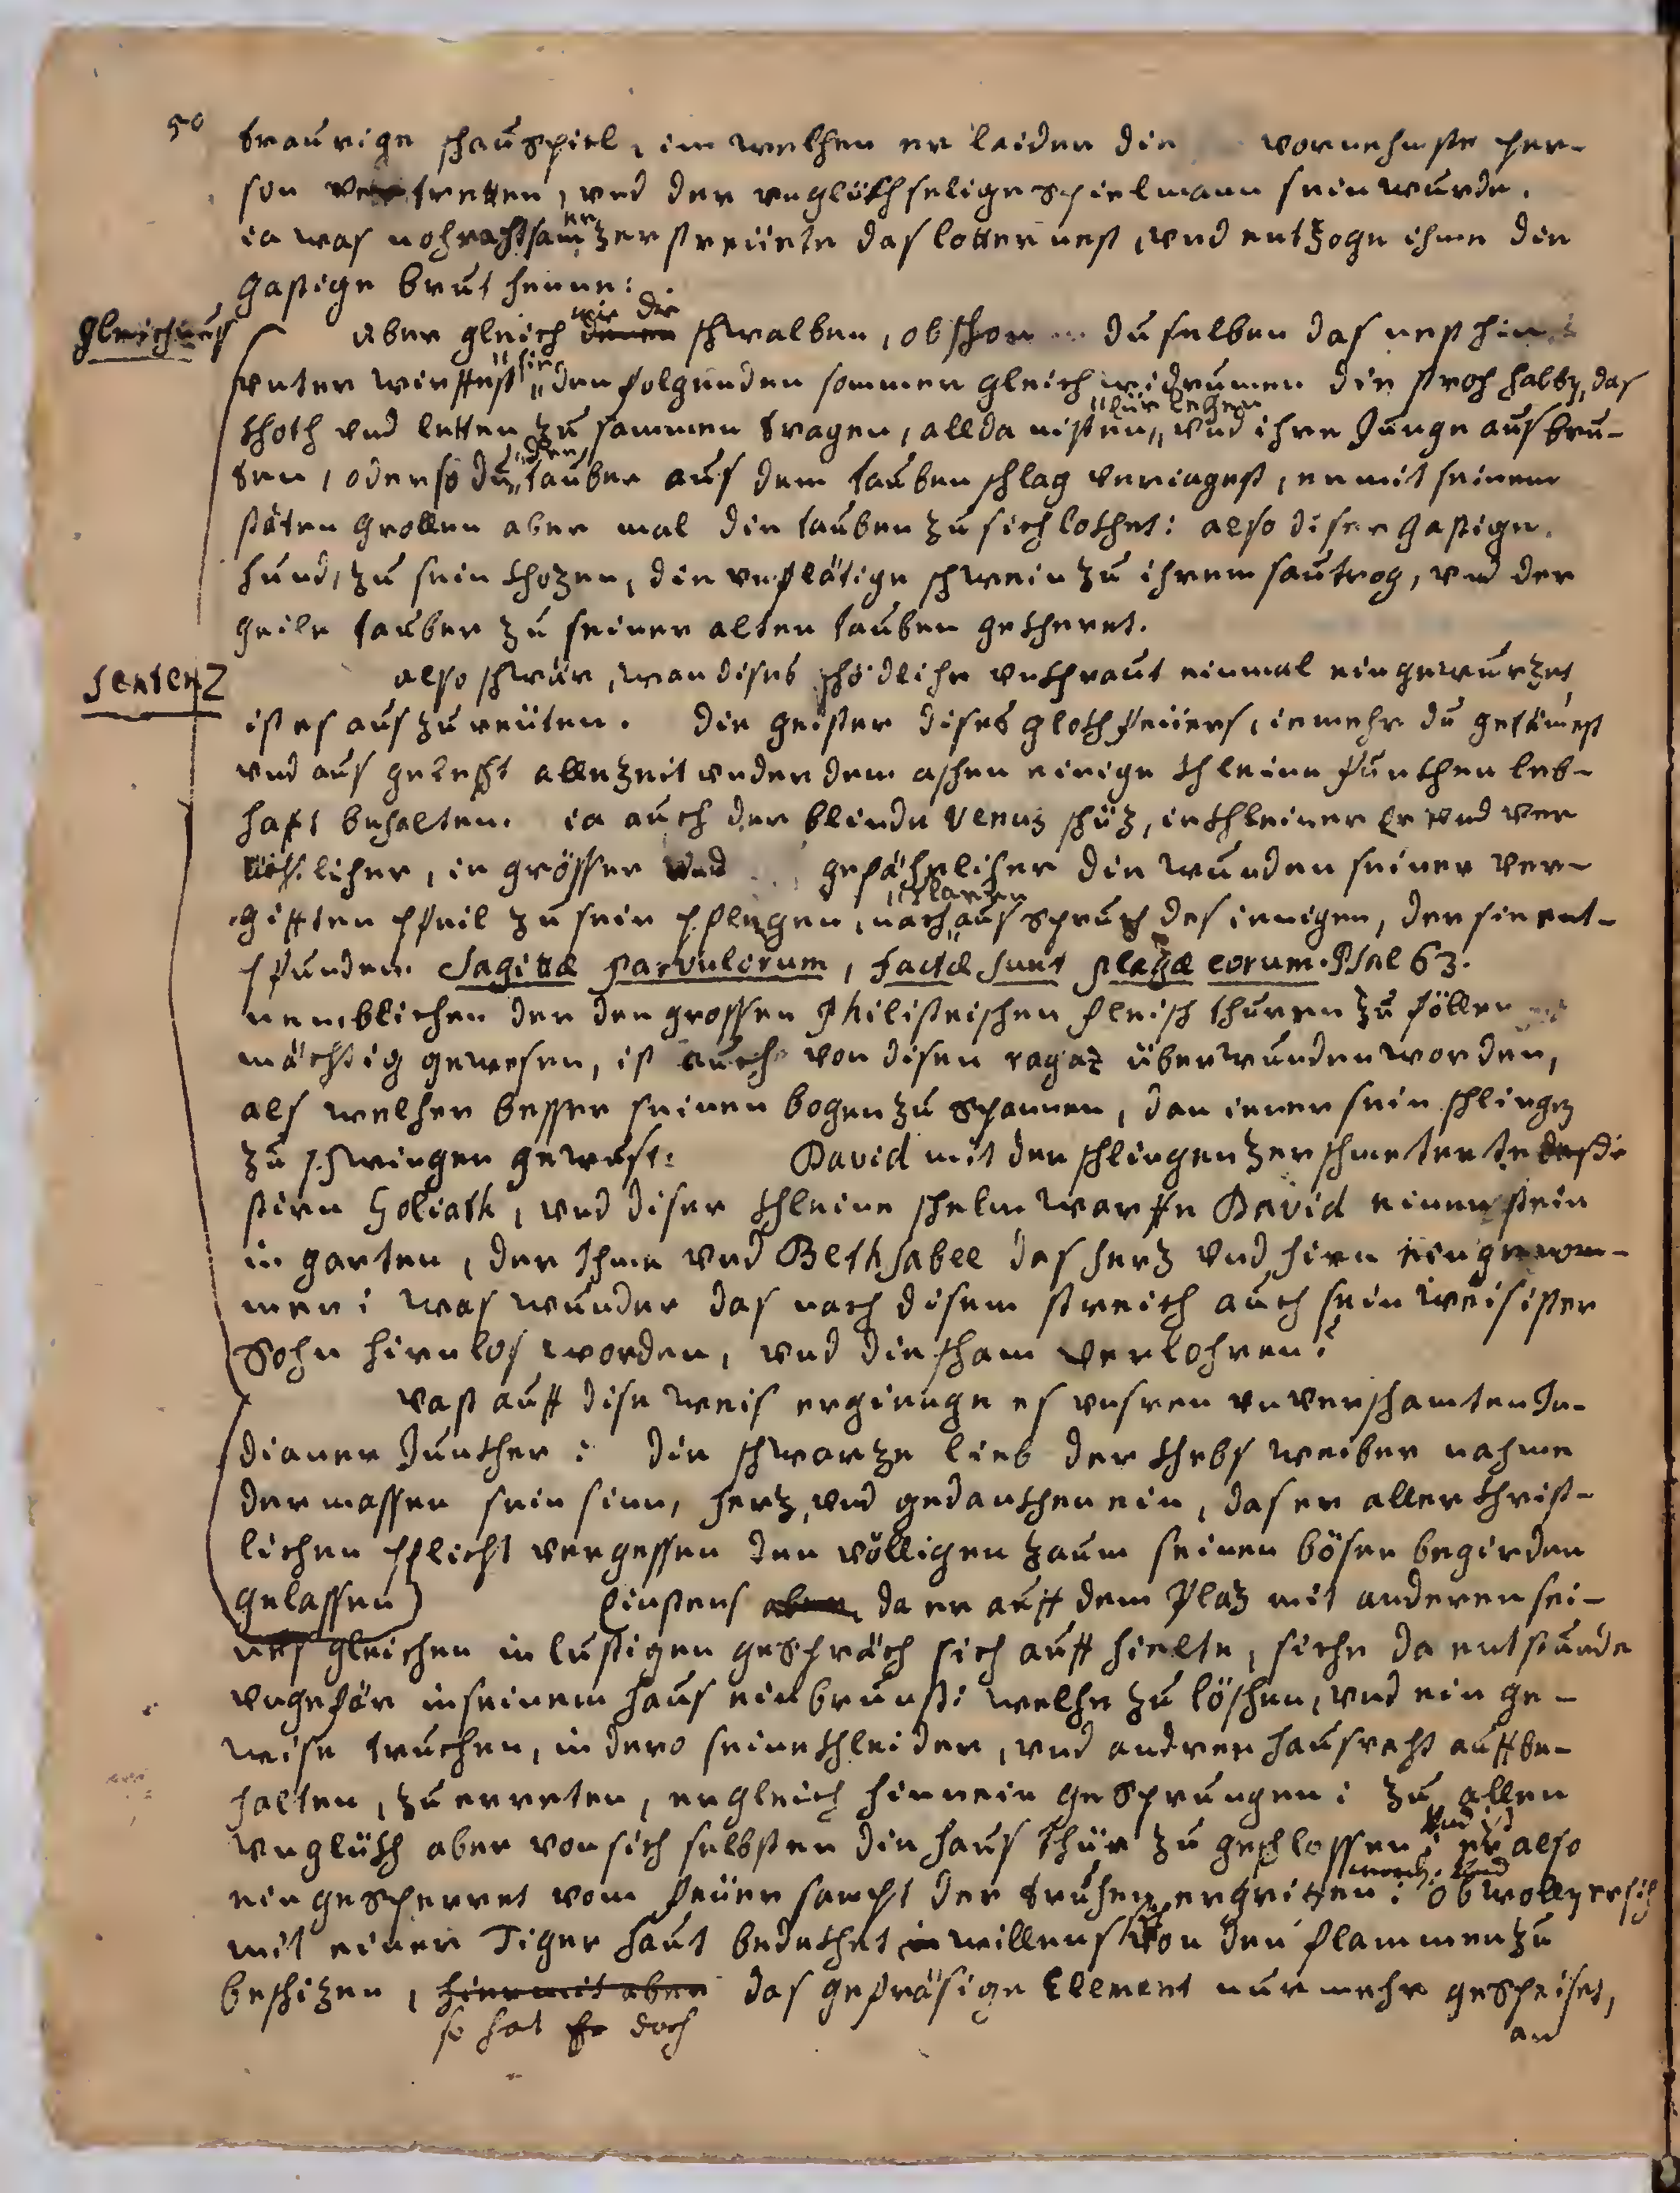 50
traurige schauspiel, im welchen er leider die vornehmste per-
son vertretten, und der unglükhselige spielmann sein wurde.
er
ia was zerstreüete das lotternest, und entzoge ihme die
gastige brut
wie die
gleichnus
aber gleich denen schwalben, obschon du selben das nest hin
sie
unter wirffest, den folgenden sommer gleich widrumen die stroh halb, das
khoth und letten zu sammen tragen, allda nisten, und ihre Junge aus bru-
den
ten, oder so du tauber aus dem tauben schlag veriagest, er mit seinem
stäten grollen aber mal die tauben zu sich lokhet: also diser gastige
hund, zu sein khozen, die unflätige schwein zu ihrem sautrog, und der
geile tauber zu seiner alten tauben gekheret.
sentenz
also schwär, wan dises schödliche unkhraut einmal eingewurzet
ist es aus zu reüten. die geister dises glokhfeüers, ie mehr du getämest
und aus gelescht allezeit under dem aschen einige khleine funkhen leb-
haft behalten. ia auch der blinde Venus schüz, ie khleiner er und ver
ächtlicher, ie grösser und gefährlicher die wunden seiner ver-
klaren
gifften pfeil zu sein pflegen, nach aus spruch des ienigen, der sie ent-
pfunden. Sagittæ parvulorum, factæ sunt plagæ eorum. Psal 63.
nemblichen der den grossen Philisteischen fleisch thuren zu föllen
mächtig gewesen, ist auch von disen ragaz überwunden worden,
als welcher besser seinen bogen zu spannen, dan iener sein schlingen
zu schwingen gewust: David mit der schlingen zerschmeterte die
stirn Goliath, und diser khleine schelm warffe David einen stein
in garten, der Ihme und Bethsabee das herz und hirn eingenom-
men: was wunder das nach disem streich auch sein weisister
Sohn hirnlos worden, und die scham verlohren?
vast auff dise weis ergienge es unsren unverschamten In-
dianer Junkher: die schwarze lieb der khebs weiber nahme
dermassen sein sinn, herz, und gedankhen ein, das er aller khrist-
lichen pflicht vergessen den völligen zaum seinen bösen begirden
gelassen) Einstens aber, da er auff dem Plaz mit anderen sei-
nes gleichen in lustigen gespräch sich auff hielte, sihe da entstunde
ungefär in seinem haus ein brunst: welche zu löschen, und ein ge-
weise truchen, in dero seine khleider, und andrer hausraht auffbe-
halten, zu erreten, er gleich hinnein gesprungen: zu allen
unglükh aber von sich selbsten die haus thür zu geschlossen; er also
eingesperret vom feüer sampt der truhen ergriffen: ob woll er sich
mit einer Tiger haut bedekhet in willens sich von den flammen zu
beschizen, hiermit aber das gefräsige Element nur mehr gespeiset,
so hat doch
an